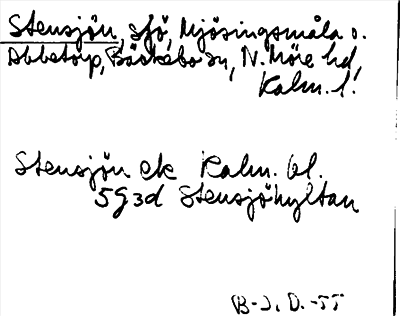 Stensjön, sjö, Mjösingsmåla o.
Abbetorp, Bäckebo sn, N. Möre hd,
Kalm. l.
Stensjön ek Kalm. bl.
5G3d Stensjöhyltan
B-J. D. -55